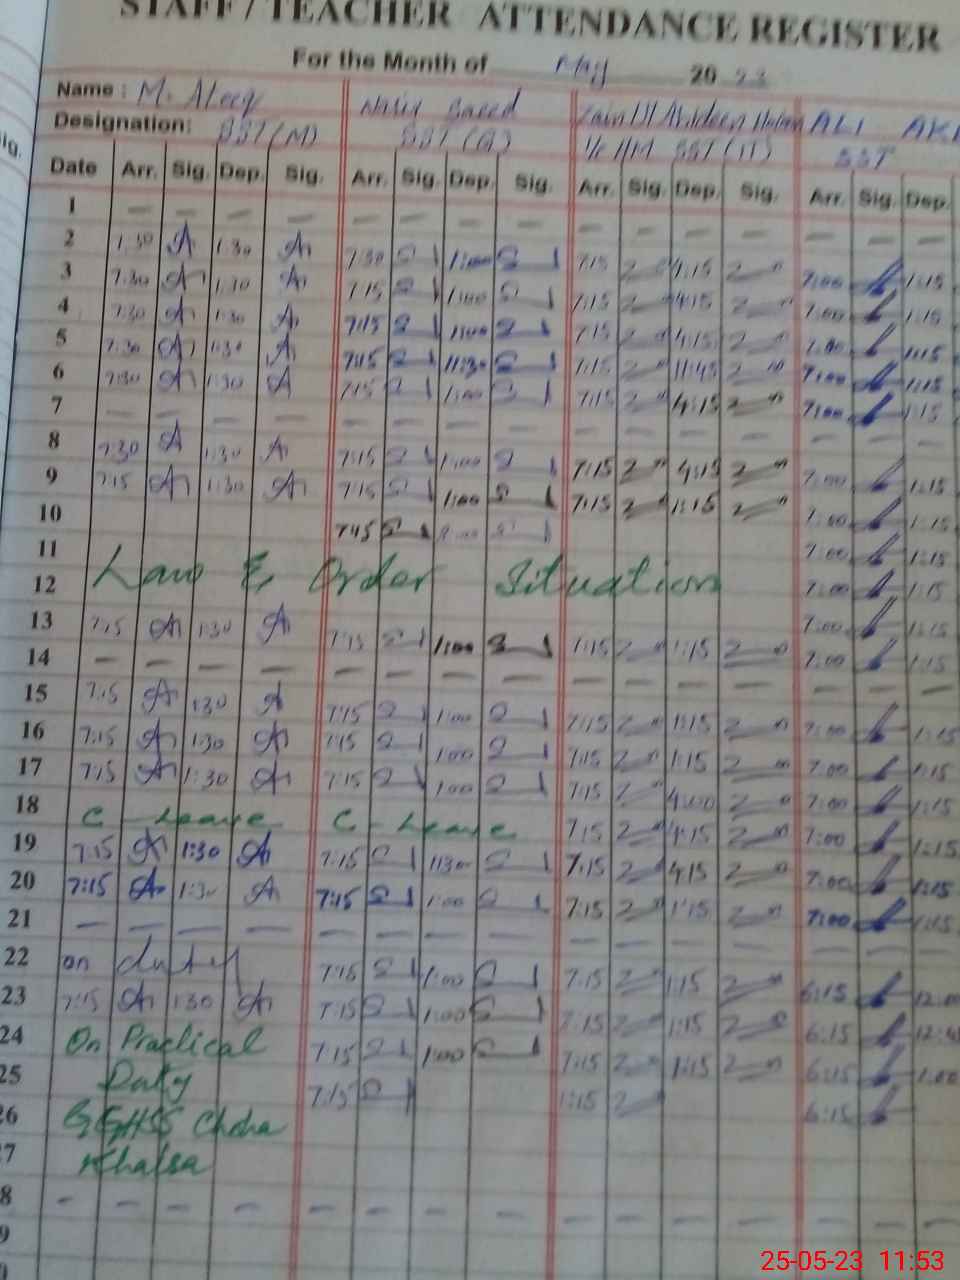 STAFF / TEACHER ATTENDANCE REGISTER
For the Month of May 20 23
Name : M. Ateeq Saeed ALI
Designation: SST (M) SST (G) I/C H/M SST (IT) SST
Date Arr. Sig. Dep. Sig. Arr. Sig. Dep. Sig. Arr. Sig. Dep. Sig. Arr. Sig. Dep.
1 — — — — — — — — — — — — — — —
2 1:30 1:30 7:30 1:00 7:15 4:15 7:00 1:15
3 7:30 1:30 7:15 1:00 7:15 4:15 7:00 1:15
4 7:30 1:30 7:15 1:00 7:15 4:15 7:00 1:15
5 7:30 1:30 7:15 11:30 7:15 11:45 7:00 1:15
6 7:30 1:30 7:15 1:00 7:15 4:15 7:00 1:15
7 — — — — — — — — — — — — — — —
8 7:30 1:30 7:15 1:00 7:15 4:15 7:00 1:15
9 7:15 1:30 7:15 1:00 7:15 1:15 7:00 1:15
10 7:45 7:00 1:15
11 7:00 1:15
12 Law & Order Situation 7:00 1:15
13 7:15 1:30 7:15 1:00 7:15 1:15 7:00 1:15
14 — — — — — — — — — — — — — — —
15 7:15 1:30 7:15 1:00 7:15 1:15 7:00 1:15
16 7:15 1:30 7:15 1:00 7:15 1:15 7:00 1:15
17 7:15 1:30 7:15 1:00 7:15 4:00 7:00 1:15
18 C - Leave C - Leave 7:15 4:15 7:00 1:15
19 7:15 1:30 7:15 1:30 7:15 4:15 7:00 1:15
20 7:15 1:30 7:15 1:00 7:15 1:15 7:00 1:15
21 — — — — — — — — — — — — — — —
22 on duty 7:15 1:00 7:15 1:15 6:15
23 7:15 1:30 7:15 1:00 7:15 1:15 6:15
24 On Practical 7:15 1:00 7:15 1:15 6:15 1:00
25 Duty 7:15 7:15 6:15
26 GGHSS Choha
7 Khalsa
8 — — — — — — — — — — — — — — —
9
25-05-23 11:53